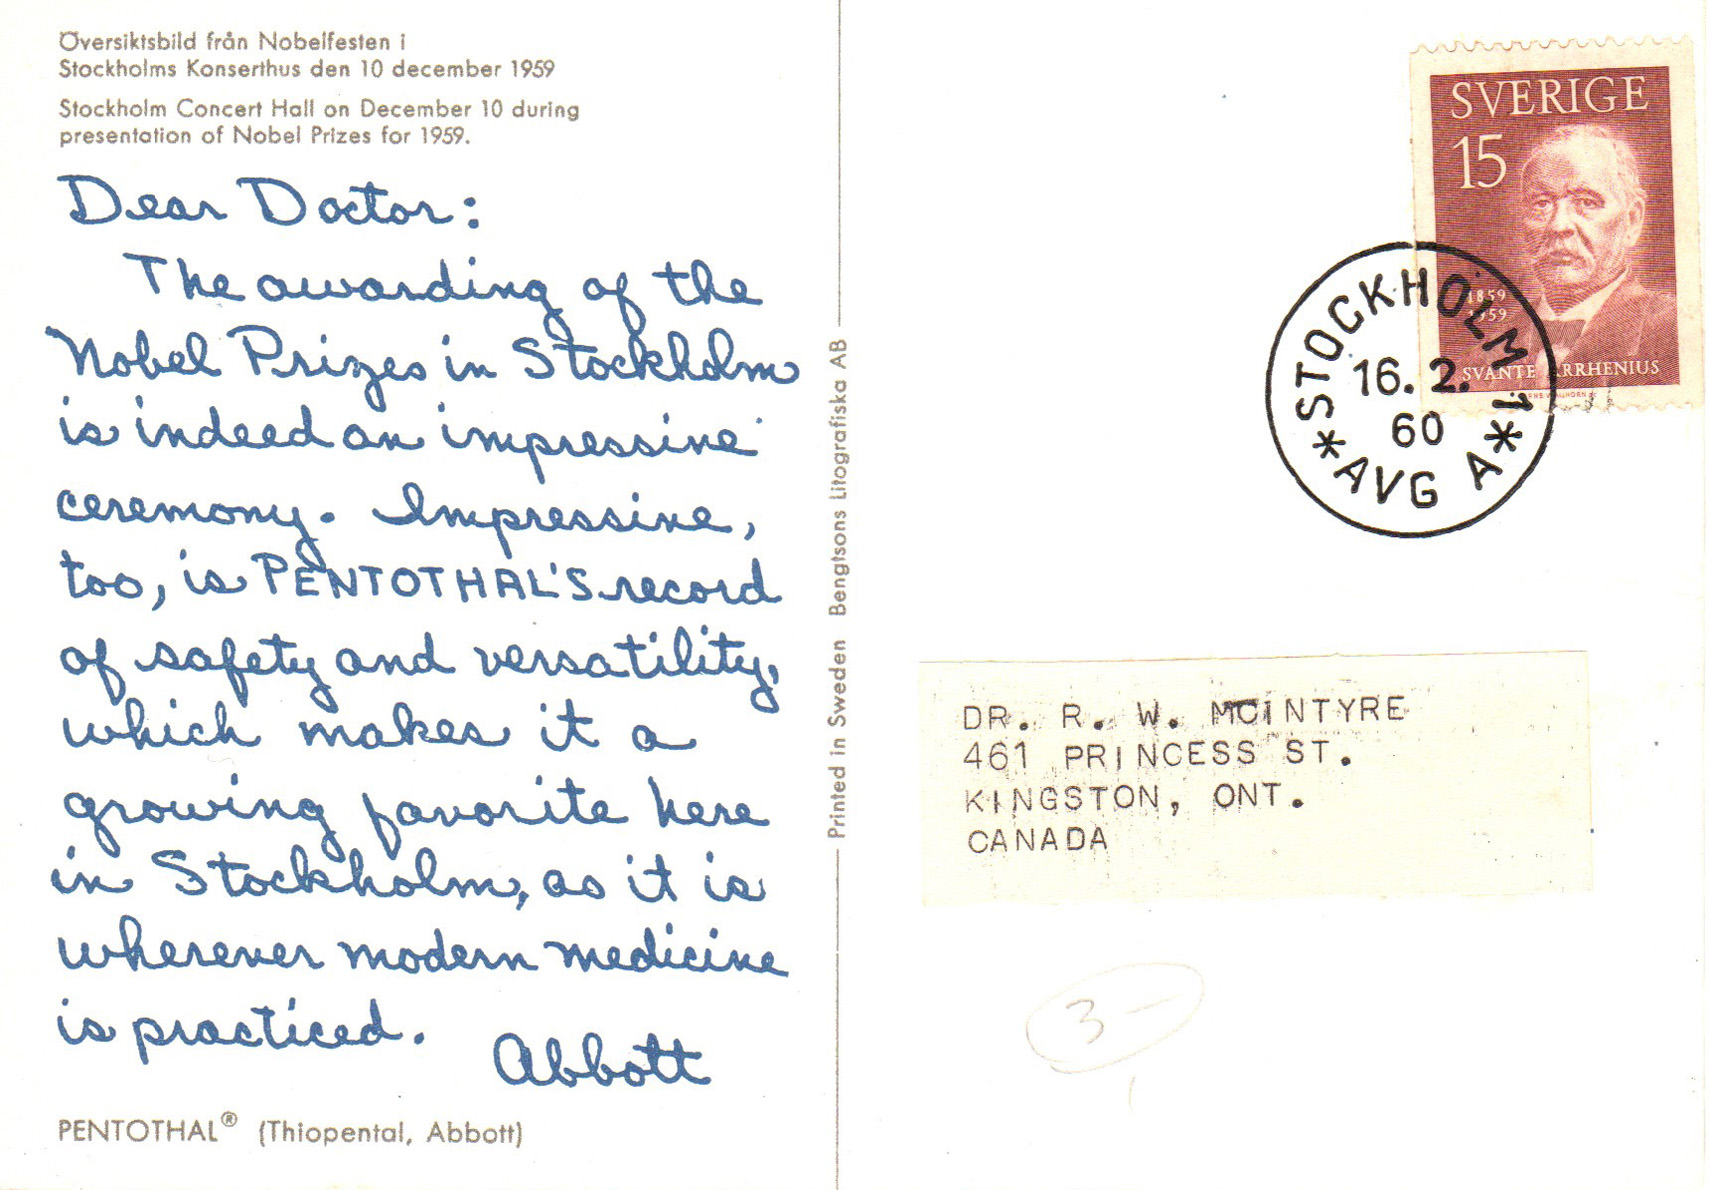 Översiktsbild från Nobelfesten i
Stockholms Konserthus den 10 december 1959
Stockholm Concert Hall on December 10 during
presentation of Nobel Prizes for 1959.
Dear Doctor:
The awarding of the
Nobel Prizes in Stockholm
is indeed an impressive
ceremony. Impressive,
too, is PENTOTHAL'S record
of safety and versatility,
which makes it a
growing favorite here
in Stockholm, as it is
wherever modern medicine
is practiced.
Abbott
PENTOTHAL® (Thiopental, Abbott)
Printed in Sweden Bengtsons Litografiska AB
SVERIGE
15
1859
1959
SVANTE ARRHENIUS
STOCKHOLM 1
16.2.
60
* AVG A *
DR. R. W. MCINTYRE
461 PRINCESS ST.
KINGSTON, ONT.
CANADA
3-